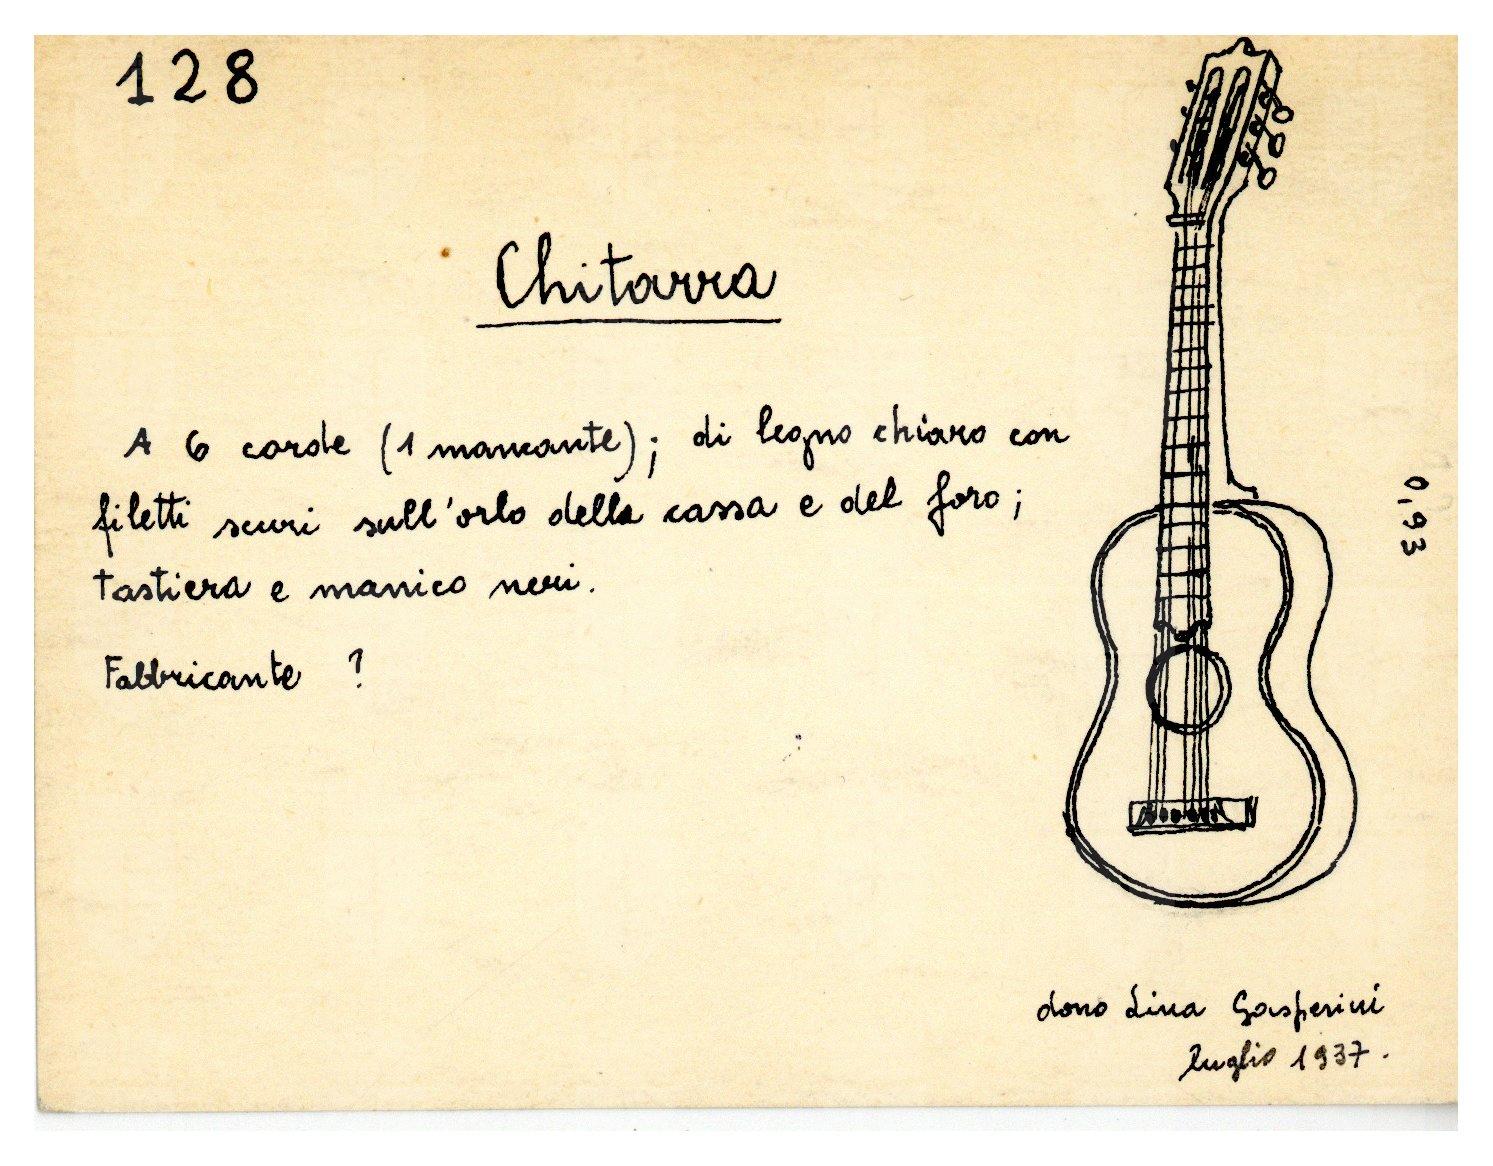 128
Chitarra
A 6 corde (1 mancante); di legno chiaro con
filetti scuri sull'orlo della cassa e del foro;
tastiera e manico neri.
Fabbricante ?
0,93
dono Lina Gasperini
luglio 1937.